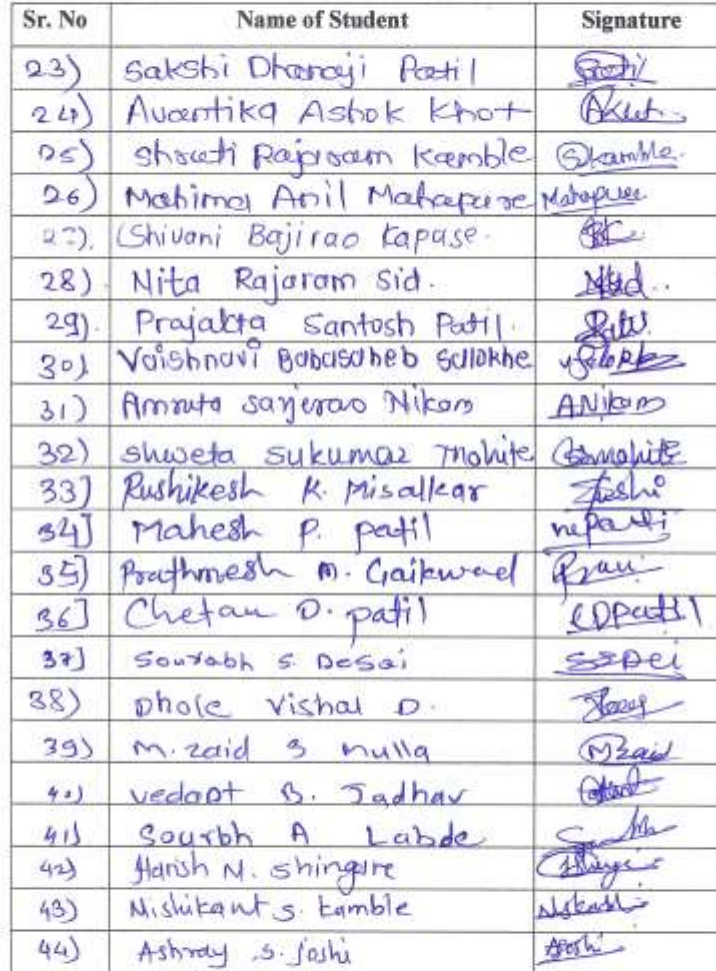 Sr. No Name of Student Signature
23) Sakshi Dhanaji Patil Patil
24) Avantika Ashok Khot AKhot
25) Shruti Rajaram Kamble SKamble
26) Mahima Anil Mahapure Mahapure
27). Shivani Bajirao Kapase.
28) Nita Rajaram Sid.
29). Prajakta Santosh Patil.
30) Vaishnavi Babasaheb Salokhe
31) Amruta Sanjerao Nikam ANikam
32) shweta sukumar mohite Ssmohite
33] Rushikesh K. Misalkar
34] Mahesh P. patil
35] Prathmesh M. Gaikwad
36] Chetan D. patil CDPatil
37] Sourabh S. Desai
38) Dhole Vishal D.
39) M. zaid S mulla MZaid
40) vedant B. Jadhav
41) Sourbh A Labde
42) Harish M. Shingare
43) Nishikant S. Kamble
44) Ashray S. Joshi